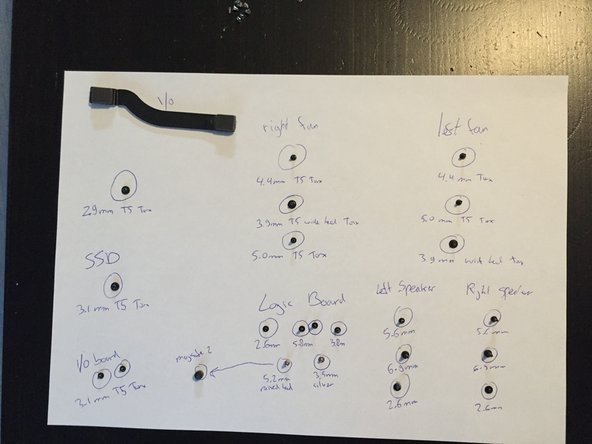 I/O
right fan
left fan
4.4mm T5 Torx
4.4mm Torx
2.9mm T5 Torx
3.9mm T5 wide head Torx
5.0mm T5 Torx
5.0mm T5 Torx
3.9mm wide head Torx
SSD
3.1mm T5 Torx
Logic Board
Left Speaker
Right speaker
2.6mm
5.8mm
3.8m
5.6mm
I/O board
3.1mm T5 Torx
magsafe 2
5.2mm
raised head
3.5mm
silver
6.3mm
2.6mm
2.6mm